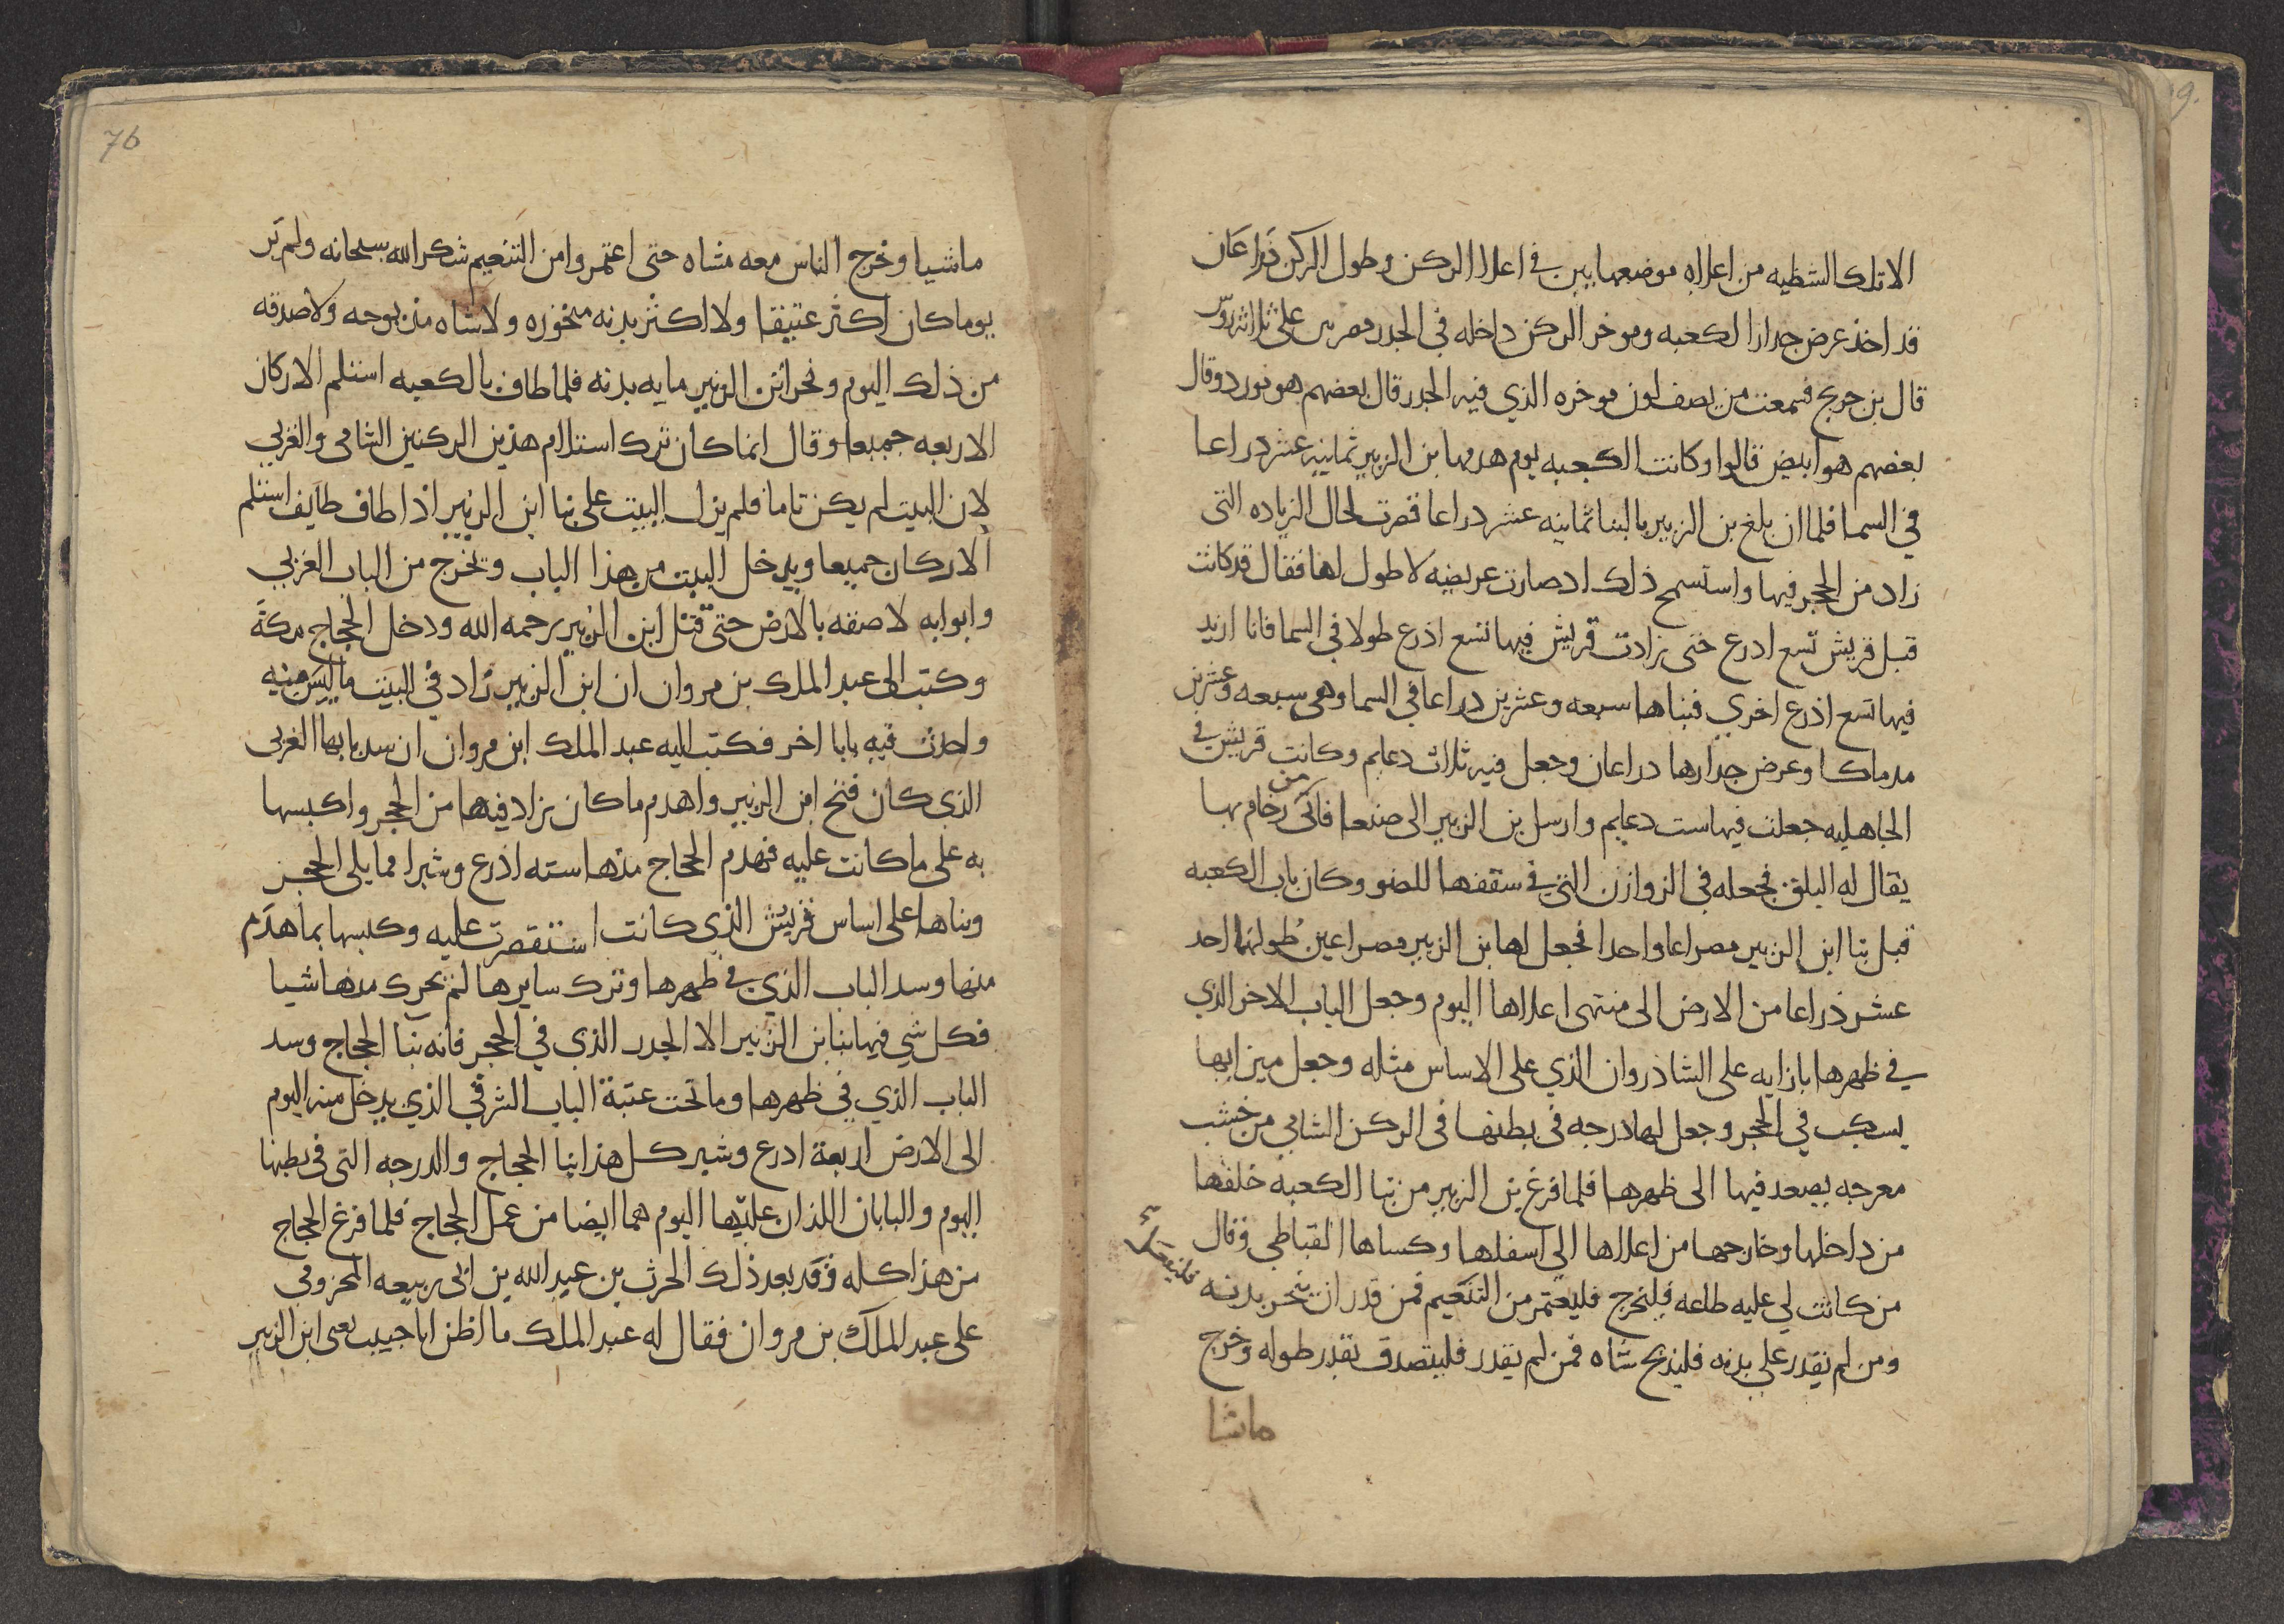 الا تلك الشظيه من اعلااه موضعها بين في اعلا الركن وطول الركن ذراعان
قد اخذ عرض جدار الكعبه وموخر الركن داخله في الجدر مضرس على ثلاثه روس
قال بن جريج فسمعت من يصف لون موخره الذي فيه الجدر قال بعضهم هو مورد وقال
بعضهم هو ابيض قالوا وكانت الكعبه يوم هدمها بن الزبير ثمانيه عشر دراعا
في السما فلما ان بلغ بن الزبير بالبنا ثمانيه عشر دراعا قصرت لحال الزياده التي
زاد من الحجر فيها واستسمج ذلك اد صارت عريضه لا طول لها فقال قد كانت
قبل قريش تسع ادرع حتى زادت قريش فيها تسع اذرع طولا في السما فانا ازيد
فيها تسع اذرع اخري فبناها سبعه وعشرين دراعا في السما وهي سبعه وعشرين
مدماكا وعرض جدارها دراعان وجعل فيه ثلاث دعايم وكانت قريش في
الجاهليه جعلت فيها ست دعايم وارسل بن الزبير الى صنعا فاتى من رخام بها
يقال له البلق فجعله في الزوازن التي في سقفها للضو وكان باب الكعبه
قبل بنا ابن الزبير مصراعا واحدا فجعل لها بن الزبير مصراعين طولهما احد
عشر ذراعا من الارض الى منتهى اعلاها اليوم وجعل الباب الاخر الذي
في ظهرها بازايه على الشاذروان الذي على الاساس مثله وجعل ميزابها
يسكب في الحجر وجعل لها درجه في بطنها في الركن الشامي من خشب
معرجه يصعد فيها الى ظهرها فلما فرغ بن الزبير من بنا الكعبه خلقها
من داخلها وخارجها من اعلاها الى اسفلها وكساها القباطي وقال
من كانت لي عليه طاعه فليخرج فليعتمر من التنعيم فمن قدر ان ينحر بدنه فليفعل
ومن لم يقدر على بدنه فليذبح شاه فمن لم يقدر فليتصدق بقدر طوله وخرج
ماشا
76
ماشيا وخرج الناس معه مشاه حتى اعتمروا من التنعيم شكرا لله سبحانه ولم ير
يوما كان اكثر عتيقا ولا اكثر بدنه منحوره ولا شاه مذبوحه ولا صدقه
من ذلك اليوم ونحر ابن الزبير مايه بدنه فلما طاف بالكعبه استلم الاركان
الاربعه جميعا وقال انما كان ترك استلام هذين الركنين الشامي والغربي
لان البيت لم يكن تاما فلم يزل البيت على بنا ابن الزبير اذا طاف طايف استلم
الاركان جميعا ويدخل البيت من هذا الباب وتخرج من الباب الغربي
وابوابه لاصقه بالارض حتى قتل ابن الزبير رحمه الله ودخل الحجاج مكة
وكتب الى عبد الملك بن مروان ان ابن الزبير زاد في البيت ما ليس منه
واحدث فيه بابا اخر فكتب اليه عبد الملك ابن مروان ان سد بابها الغربي
الذي كان فتح ابن الزبير واهدم ما كان زاد فيها من الحجر واكبسها
به على ما كانت عليه فهدم الحجاج منها سته اذرع وشبرا مما يلى الحجر
وبناها على اساس قريش الذي كانت استقصرت عليه وكبسها بما هدم
منها وسد الباب الذي في ظهرها وترك سايرها لم يحرك منها شيا
فكل شي فيها بنا بن الزبير الا الجدر الذي في الحجر فانه بنا الحجاج وسد
الباب الذي في ظهرها وما تحت عتبة الباب الشرقي الذي يدخل منه اليوم
الى الارض اربعة ادرع وشبر كل هذا بنا الحجاج والدرجه التي في بطنها
اليوم والبابان اللذان عليها اليوم هما ايضا من عمل الحجاج فلما فرغ الحجاج
من هذا كله وفد بعد ذلك الحرث بن عبد الله بن ابي ربيعه المخزومي
على عبد الملك بن مروان فقال له عبد الملك ما اظن ابا خبيب يعني ابن الزبير